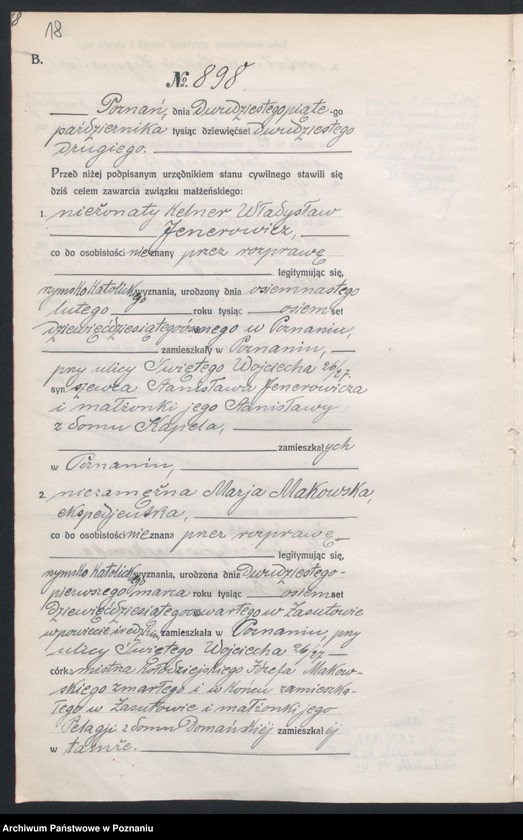 18.
B.
№ 898.
Poznań, dnia Dwudziestegopiąte-go
października tysiąc dziewięćset Dwudziestego
Drugiego.
Przed niżej podpisanym urzędnikiem stanu cywilnego stawili się
dziś celem zawarcia związku małżeńskiego:
1. nieżonaty Kelner Władysław
Jenerowicz,
co do osobistości nieznany przez rozprawę
legitymując się,
rzymsko Katolickiego wyznania, urodzony dnia osiemnastego
lutego roku tysiąc osiemset
dziewięćdziesiątego w Poznaniu,
zamieszkały w Poznaniu,
przy ulicy Świętego Wojciecha 26/27.
syn szewca Stanisława Jenerowicza
i małżonki jego Stanisławy
z domu Kápela,
zamieszkałych
w Poznaniu,
2. niezamężna Marja Makowska,
ekspedjentka,
co do osobistości nieznana przez rozprawę
legitymując się,
rzymsko Katolickiego wyznania, urodzona dnia Dwudziestego-
pierwszego marca roku tysiąc osiemset
Dziewięćdziesiątegoczwartego w Zasutowie
w powiecie średzkim, zamieszkała w Poznaniu, przy
ulicy Świętego Wojciecha 26/27
córka mistrza Kołodziejskiego Józefa Makow-
skiego zmarłego i w końcu zamieszka-
łego w Zasutowie i małżonki jego
Pelagji z domu Domańskiéj zamieszkałéj
w tamże.
Archiwum Państwowe w Poznaniu